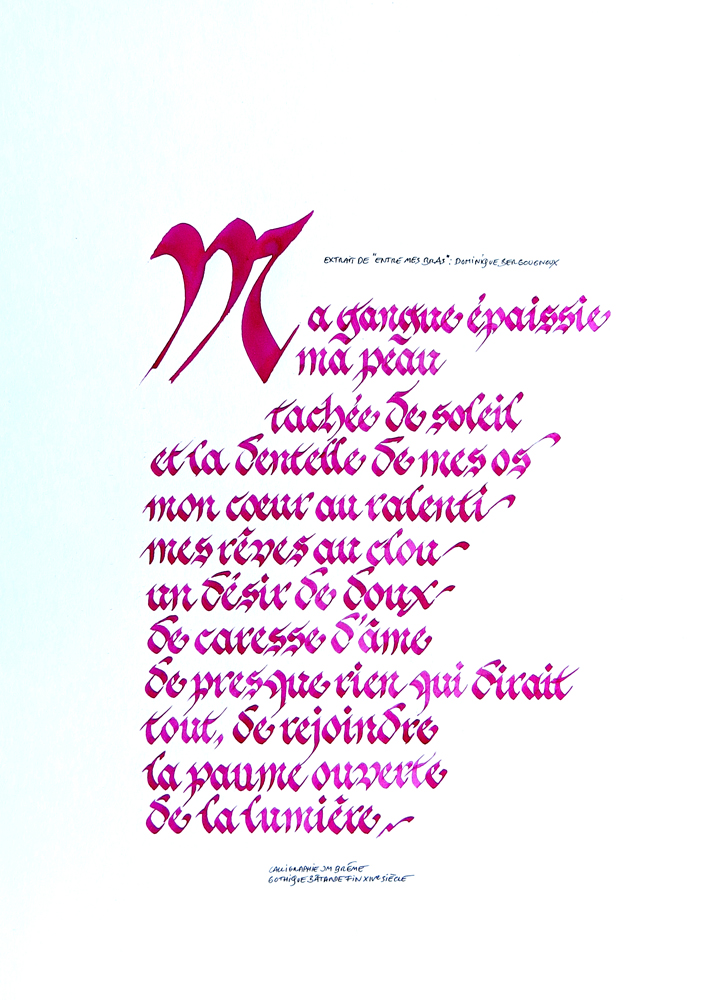 EXTRAIT DE "ENTRE MES BRAS": DOMINIQUE BERGOUGNOUX
Ma gangue épaissie
ma peau
tachée de soleil
et la dentelle de mes os
mon cœur au ralenti
mes rêves au clou
un désir de doux
de caresse d'âme
de presque rien qui dirait
tout, de rejoindre
la paume ouverte
de la lumière.
CALLIGRAPHIE JM BRÊME
GOTHIQUE BÂTARDE FIN XIVe SIÈCLE